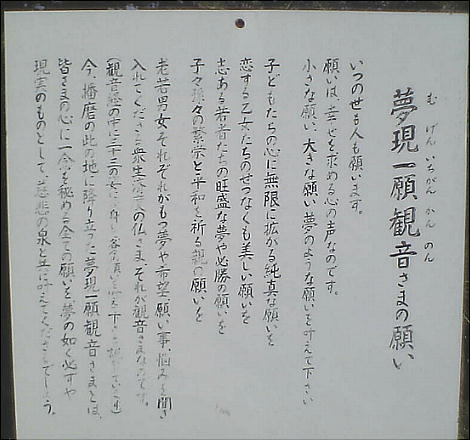 む げん いちがん かん のん
夢現一願観音さまの願い
いつの世も人も願います。
願いは、幸せを求める心の声なのです。
小さな願い、大きな願い夢のような願いを叶えて下さい
子どもたちの心に無限に拡がる純真な願いを
恋する乙女たちのせつなくも美しい願いを
志ある若者たちの旺盛な夢や必勝の願いを
子々孫々の繁栄と平和を祈る親の願いを
老若男女それぞれがもつ夢や希望、願い事、悩みを聞き
入れてくださる衆生 の仏さま、それが観音さまなのです。
(観音経の中に三十三の 身 下さると
今、播磨の此の地に降り立った「夢現一願観音さま」とは、
皆さまの心に一念を秘める全ての願いを夢の如く必ずや
現実のものとして、慈悲の泉と共に叶えてくださるでしょう。